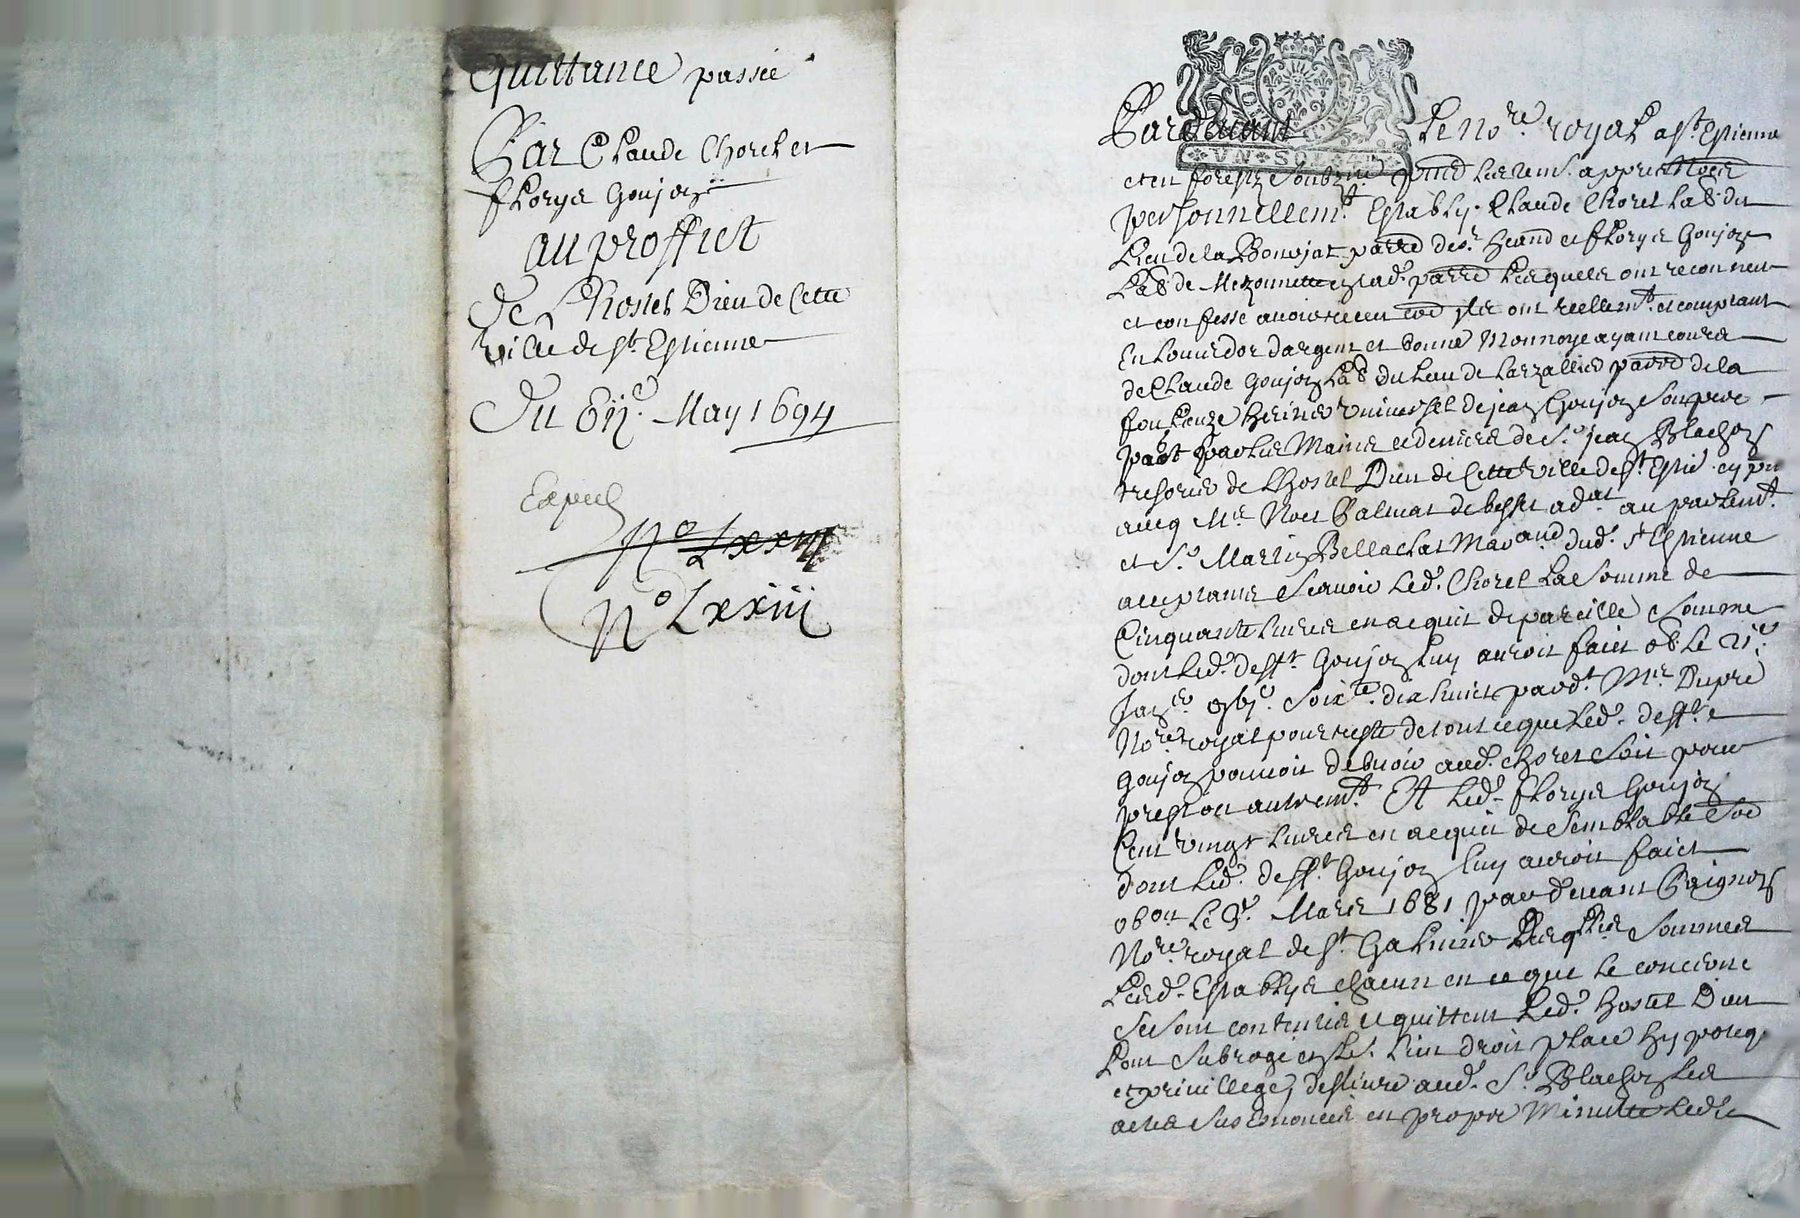 Quittance passée
Par Claude Chorel et
fleorye Goujon
au proffict
de Lhostel Dieu de Cette
ville de St Estienne
Du May 1694
No Lxxiii
No Lxxiii
Pardevant Le Nore. royal a St Estienne
VN SOL
et en forestz Soubzne
personnellemt. Estably. Claude Chorel Lab du
Lieu de la parre de St heand et fleorye Goujon
Lab de Mezonnette parre Lesquels ont reconneu
et confessé avoir receu ont reellemt. et comptant
En Louis dor dargent et bonne Monnoye ayant cours
de Claude Goujon Lab du Lieu de parre de la
foulleuze heritier universel de jean Goujon Son pere
par les Mains et deniers de Sr. jean Blachon
tresorier de Lhostel Dieu de Cette ville de St. Estie. cy pnt
avecq Me Noel Palmat de besset adat au parlemt.
et Sr. Martin Bellachat Marand dud. St Estienne
acceptants Scavoir Led. Chorel La Somme de
Cinquante Livres en acquit de pareille Somme
dont Led. defft. Goujon Luy auroit faict ob Le
Soixte. dix huict pardt. Me Dupré
Nore. royal pour reste de tout ce que Led. defft.
Goujon pouvoit debvoir aud. Chorel Soit pour
prest ou autremt. Et Led. fleorye Goujon
Cent vingt Livres en acquit de Semblable
dont Led. defft. Goujon Luy auroit faict
obon Le Mars 1681 pardevant Paignon
Nore. royal de St. Galmier Sommes
Lesd. Establys chacun en ce que le concerne
Se Sont contentés et quittent Led. hostel Dieu
Lont Subrogé en Lieu droit place hypoteq
et privillege, deslivré aud. Sr. Blachon Les
actes Sus enoncés en propre Minutte